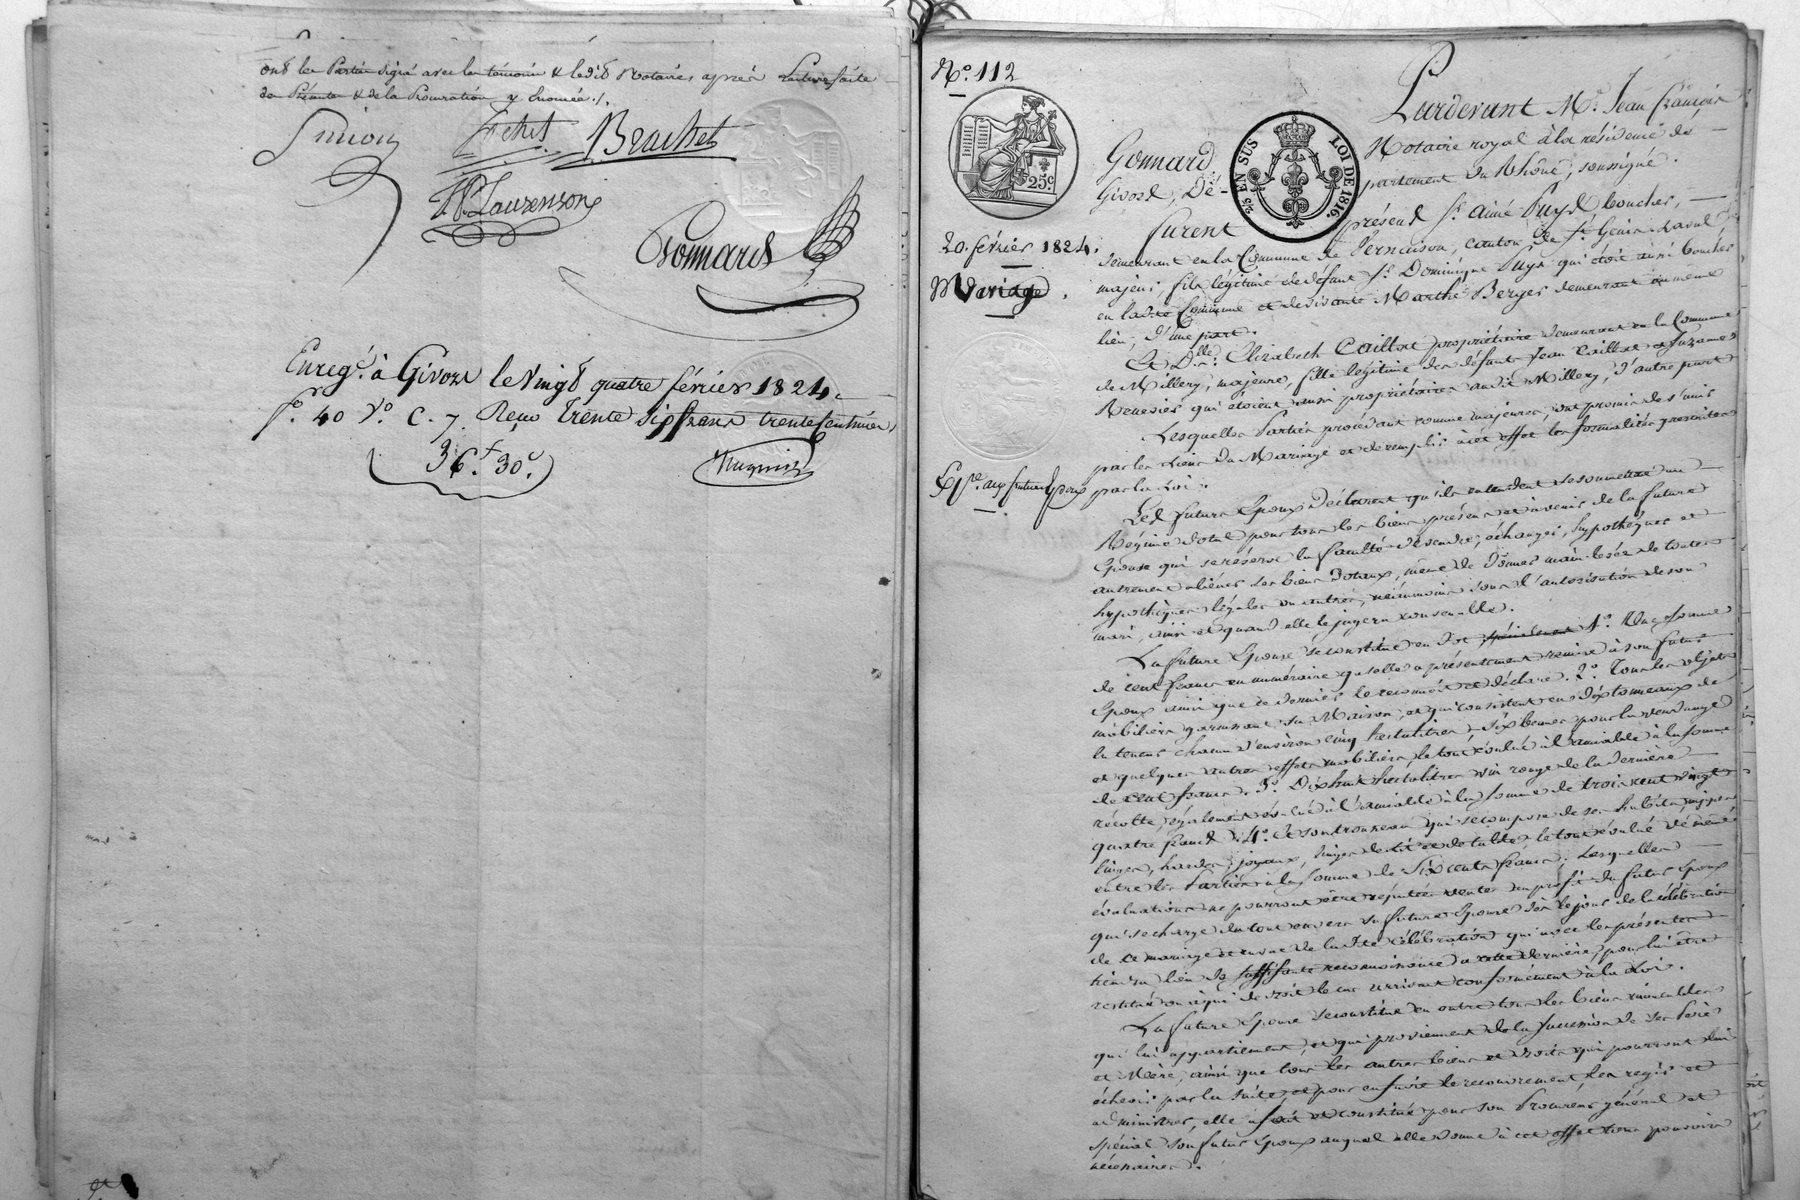 ont les Parties signé avec les témoins & ledit Notaire, après lecture faite
des Présentes & de la Procuration y énoncée ./.
Simion Fichet Brachet
Lauzenson
Gonnard
Enreg.é à Givors le vingt quatre février 1824.
f.o 40 V.o C. 7. Reçu trente six francs trente centimes
36.f 30.c
N.o 112
25c
2/5 EN SUS LOI DE 1816.
20. février 1824.
Mariage.
Exp.on aux futurs Epoux
Pardevant M.e Jean François
Gonnard Notaire royal à la résidence de
Givors, Dé-partement du Rhône, soussigné.
Furent présens S.r Aimé Puys boucher,
demeurant en la Commune de Vernaison, canton de S.t Genis-Laval
majeur, fils légitime de défunt S.r Dominique Puys qui étoit aussi boucher
en ladite Commune et de vivante Marthe Berger demeurant au même
lieu, d'une part.
Et D.lle Elizabeth Caillot propriétaire demeurant en la Commune
de Millery, majeure, fille légitime des défunts Jean Caillot et Suzanne
Renevier qui étoient aussi propriétaires audit Millery, d'autre part
Lesquelles Parties procédant comme majeures, ont promis de s'unir
par les liens du Mariage et de remplir à cet effet les formalités prescrites
par la Loi.
Les d. futurs Epoux Déclarent qu'ils entendent se soumettre au
Régime dotal pour tous les biens présens et à venir de la future
Epouse qui se réserve la faculté de vendre, échanger, hypothéquer et
autrement aliéner ses biens dotaux, même de donner main-levée de toutes
hypothèques légales ou autres, néanmoins sous l'autorisation de son
mari, ainsi et quand elle le jugera convenable.
La future Epouse se constitue en dot spécialement 1.o Une somme
de cent francs en numéraire qu'elle a présentement remise à son futur
Epoux ainsi que ce dernier le reconnoit et déclare. 2.o Tous les objets
mobiliers garnissant sa Maison, et qui consistent en dix tonneaux de
la teneur chacun d'environ cinq hectolitres, six bennes pour la vendange
et quelques autres effets mobiliers, le tout évalué à l'amiable à la somme
de cent francs. 3.o Dix huit hectolitres vin rouge de la dernière
récolte, également évalué à l'amiable à la somme de trois cent vingt
quatre francs. 4.o Et son trousseau qui se compose de ses habits, nippes
linges, hardes, joyaux, linges de lit et de table, le tout évalué de même
entre les Parties à la somme de Six cents francs. Lesquelles
évaluations ne pourront être réputées ventes au profit du futur Epoux
qui se charge du tout envers sa future Epouse dès le jour de la célébration
de ce mariage et en vue de la dite célébration qui avec les présentes
tiendra lieu de suffisante reconnoissance à cette dernière, pour lui être
restitué ou à qui de droit le cas arrivant conformément à la Loi.
La future Epouse se constitue en outre tous les biens immeubles
qui lui appartiennent, et qui proviennent de la succession de ses Père
et Mère, ainsi que tous les autres biens et droits qui pourront lui
échoir par la suite, et pour en faire le recouvrement, les régir et
administrer, elle a fait et constitué pour son Procureur général et
spécial son futur Epoux auquel elle donne à cet effet tous pouvoirs
nécessaires.